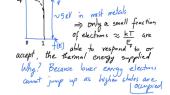 ~5eV in most metals
⇒ only a small fraction
of electrons ≈ kT/E_f are
f(E)
able to respond to, or
accept, the thermal energy supplied
Why? Because lower energy electrons
cannot jump up as higher states are
occupied